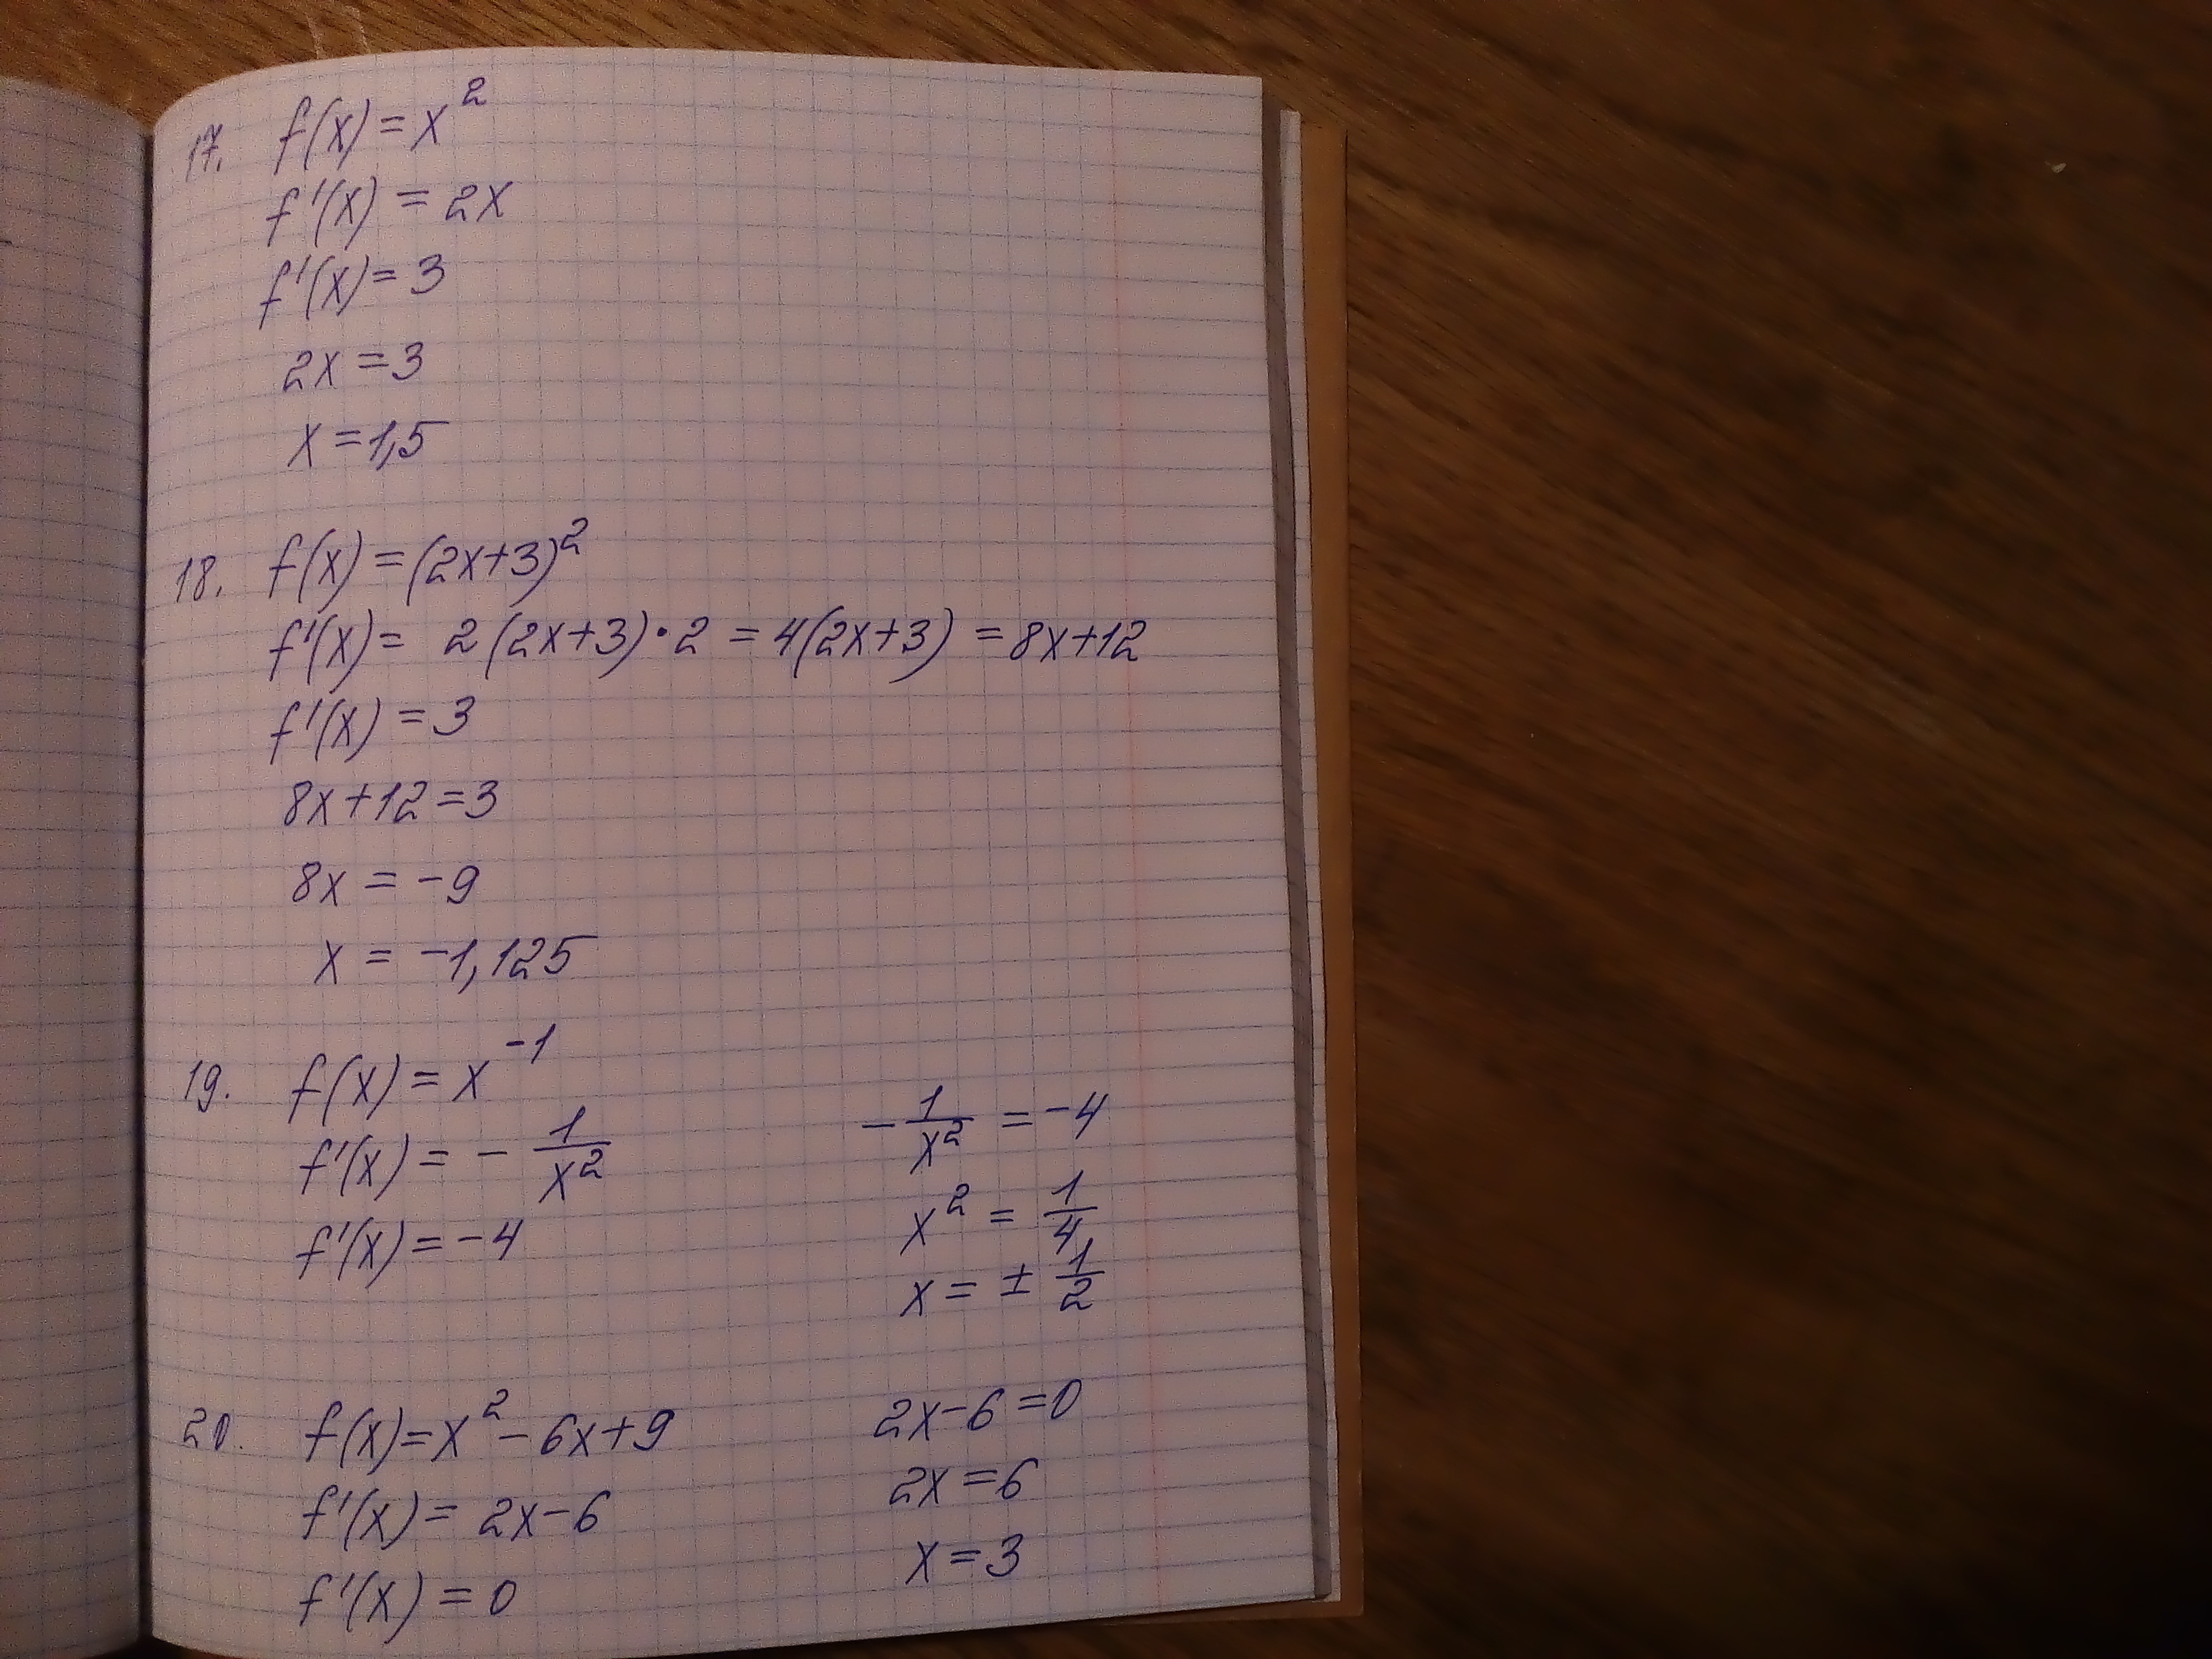 17. f(x) = x²
f'(x) = 2x
f'(x) = 3
2x = 3
x = 1,5
18. f(x) = (2x+3)²
f'(x) = 2(2x+3)·2 = 4(2x+3) = 8x+12
f'(x) = 3
8x+12=3
8x = -9
x = -1,125
19. f(x) = x⁻¹
f'(x) = - 1/x²
f'(x) = -4
- 1/x² = -4
x² = 1/4
x = ± 1/2
20. f(x) = x² - 6x+9
f'(x) = 2x-6
f'(x) = 0
2x-6=0
2x=6
x=3